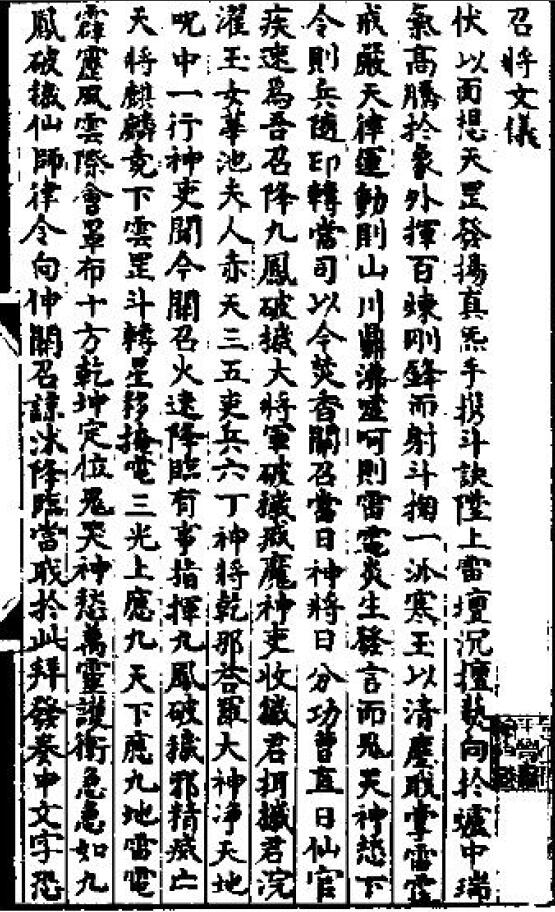 召將文儀
伏以面想天罡發揚真炁手携斗訣陞上雷壇沉擅爇向於爐中瑞
氣高騰於象外揮百煉刚鋒而射斗掬一派寒王以清塵職掌雷霆
戒嚴天律運動則山川鼎沸𠮟呵則雷電炎生發言而鬼天神愁下
令則兵隨印轉當司以今焚香關召當日神將日分功曹直日仙官
疾速為吾召降九鳳破穢大將軍破穢戒魔神吏收穢君捬穢君浣
濯王女華池夫人赤天三五吏兵六丁神將乾那荅羅大神淨天地
呪中一行神吏聞今關召火速降臨有事指揮九鳳破穢邪精滅亡
天將麒麟竟下雲罡斗轉星移掩電三光上應九天下應九地雷電
霹靂風雲際會罩布十方乾坤定位鬼哭神愁萬靈護衛急急如九
鳳破穢仙師律令向伸關召諒沐降臨當職於此拜發奏申文字恐